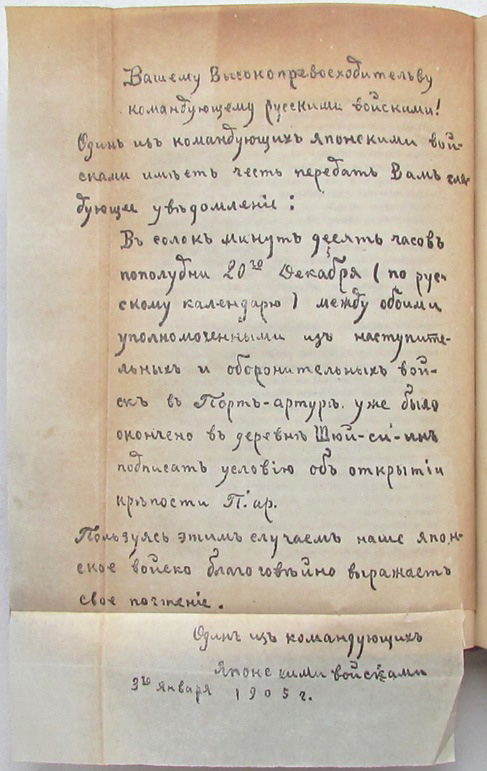 Вашему Высокопревосходительву
командующему русскими войскими!
Одинъ изъ командующихъ японскими вой-
сками имѣетъ честь передать Вамъ слѣ-
дующее увѣдомленіе:
Въ солокъ минутъ десять часовъ
пополудни 20го Декабря (по рус-
скому календарю) между обоими
уполномоченными изъ наступите-
льныхъ и оборонительныхъ вой-
скъ въ Портъ-артурѣ уже было
окончено въ деревнѣ Шюй-си-инъ
подписать условію объ открытіи
крѣпости П.ар.
Пользуясь этимъ случаемъ наше япон-
ское войско благоговѣйно выражаетъ
свое почтеніе.
Одинъ изъ командующихъ
японскими войсками
3го Января 1905 г.